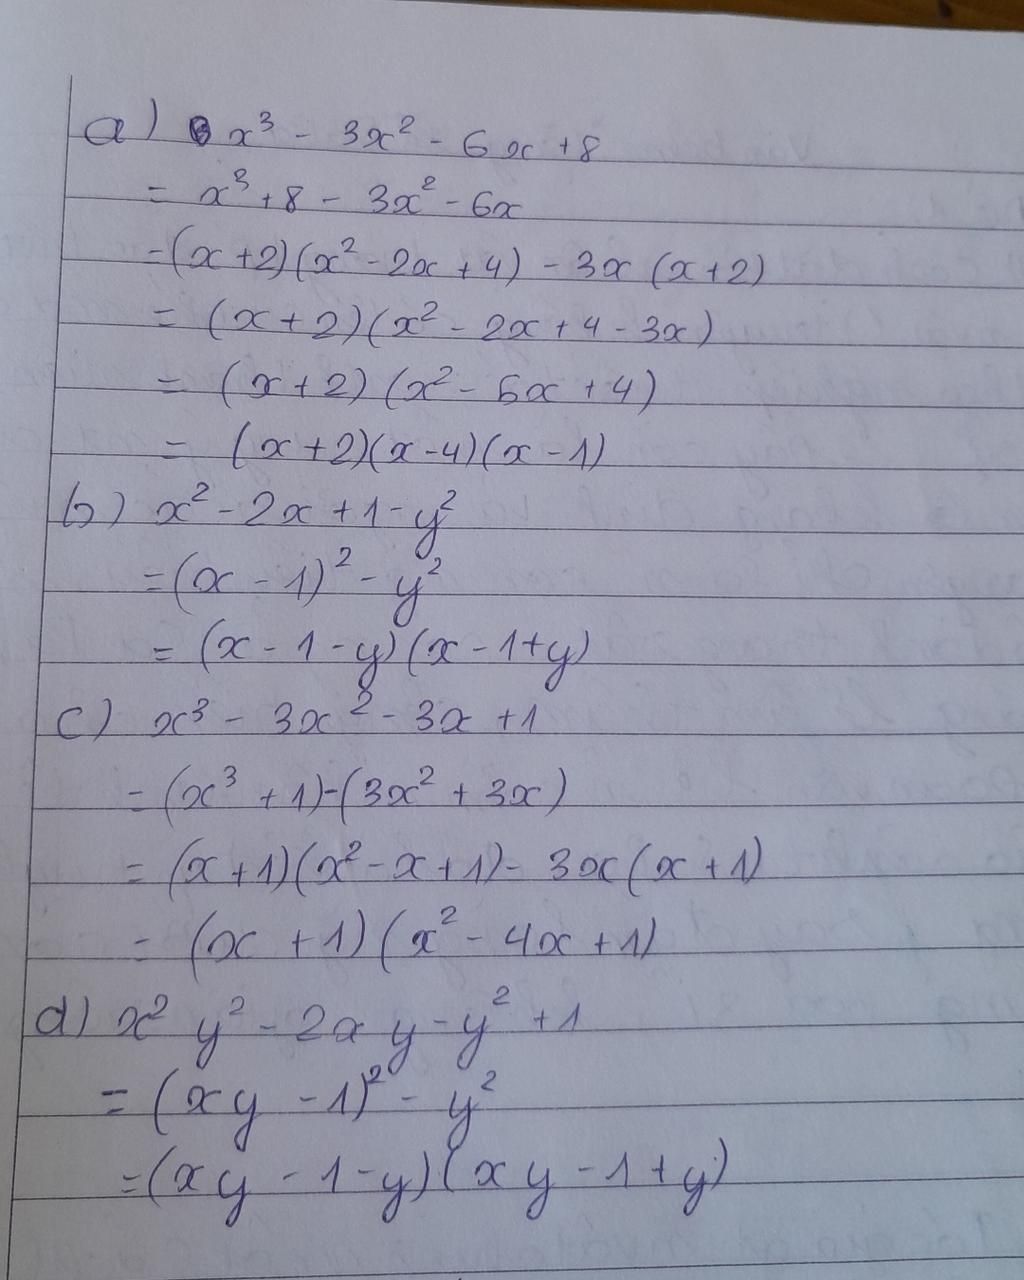 a) x³ - 3x² - 6x + 8
= x³ + 8 - 3x² - 6x
= (x + 2)(x² - 2x + 4) - 3x (x + 2)
= (x + 2)(x² - 2x + 4 - 3x)
= (x + 2) (x² - 5x + 4)
= (x + 2)(x - 4)(x - 1)
b) x² - 2x + 1 - y²
= (x - 1)² - y²
= (x - 1 - y)(x - 1 + y)
c) x³ - 3x² - 3x + 1
= (x³ + 1) - (3x² + 3x)
= (x + 1)(x² - x + 1) - 3x (x + 1)
= (x + 1)(x² - 4x + 1)
d) x² y² - 2xy - y² + 1
= (xy - 1)² - y²
= (xy - 1 - y)(xy - 1 + y)